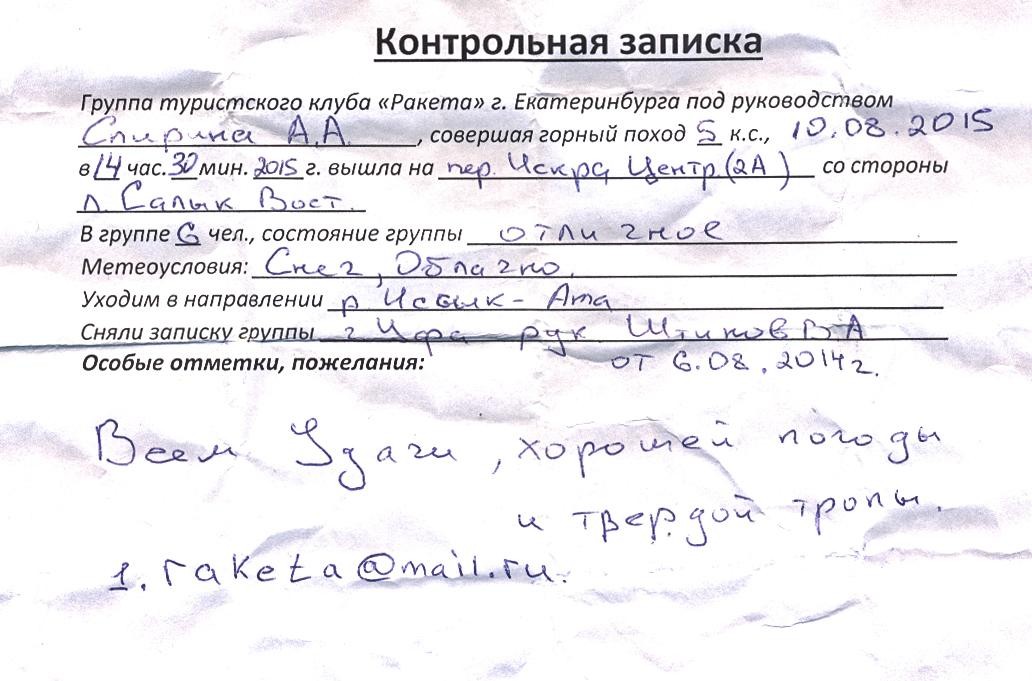 Контрольная записка
Группа туристского клуба «Ракета» г. Екатеринбурга под руководством
Спирина А.А. , совершая горный поход 5 к.с., 10.08.2015
в 14 час. 30 мин. 2015 г. вышла на пер. Искра Центр. (2А) со стороны
л. Салык Вост.
В группе 6 чел., состояние группы отличное
Метеоусловия: Снег, Облачно.
Уходим в направлении р Иссык-Ата
Сняли записку группы г Уфа рук Штиков В А
Особые отметки, пожелания: от 6.08.2014 г.
Всем Удачи, хорошей погоды
и твердой тропы.
1.raketa@mail.ru.